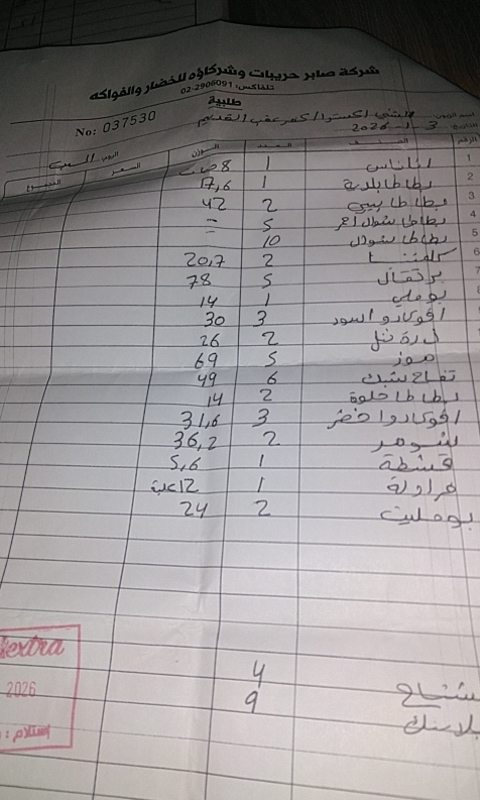 شركة صابر حريبات وشركاؤه للخضار والفواكه
تلفاكس: 02-2906091
طلبية
No: 037530
اكسترا / كفر عقب القديم
اليوم: السبت التاريخ 3-1-2026
الرقم الصنف العدد الوزن السعر المجموع
1 اناناس 1 8
2 بطاطا بلدية 1 17,6
3 بطاطا بيبي 2 42
4 بطاطا شوال احمر 5 =
5 بطاطا شوال 10 =
6 كلمنتينا 2 20,7
7 برتقال 5 78
بوملي 1 14
افوكادو اسود 3 30
2 26
موز 5 69
تفاح 6 49
بطاطا حلوة 2 14
افوكادو اخضر 3 31,6
شومر 2 36,2
قشطة 1 5,6
فراولة 1 12
بومليت 2 24
extra
2026
استلام:
مشتاح 4
بلاستك 9